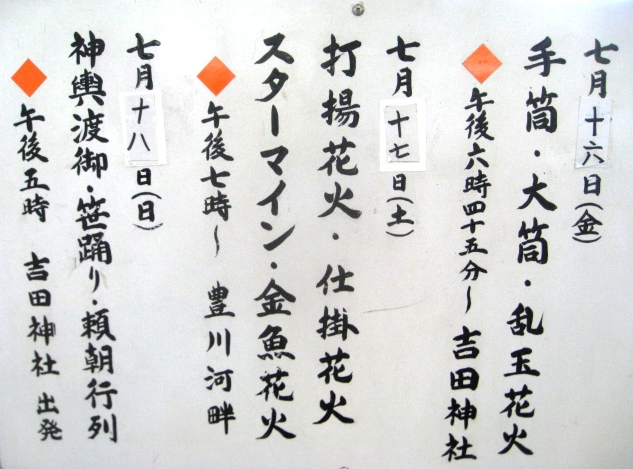 七月十六日(金)
手筒・大筒・乱玉花火
午後六時四十五分~ 吉田神社
七月十七日(土)
打揚花火・仕掛花火
スターマイン・金魚花火
午後七時~ 豊川河畔
七月十八日(日)
神輿渡御・笹踊り・頼朝行列
午後五時 吉田神社 出発